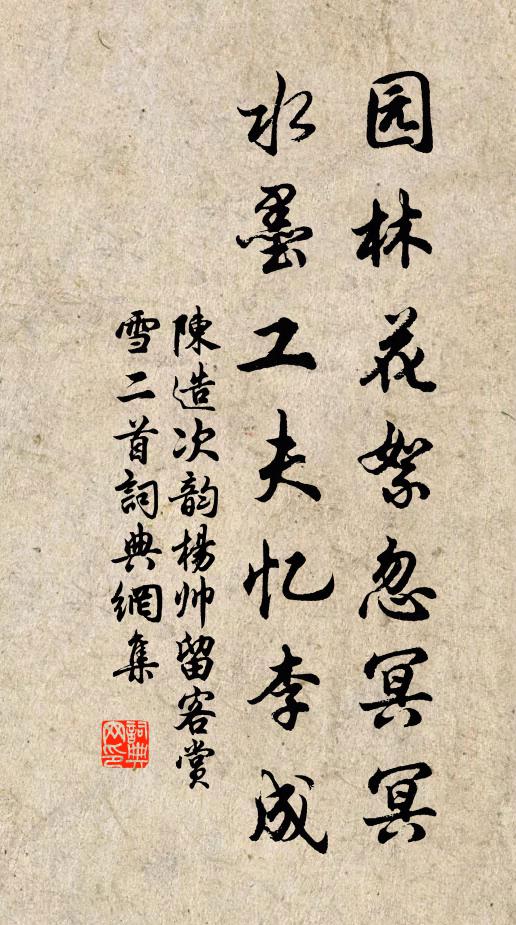 园林花絮忽冥冥
水墨工夫忆李成
陳造次韵楊帅留客赏
雪二首詞典網集
詞典网印